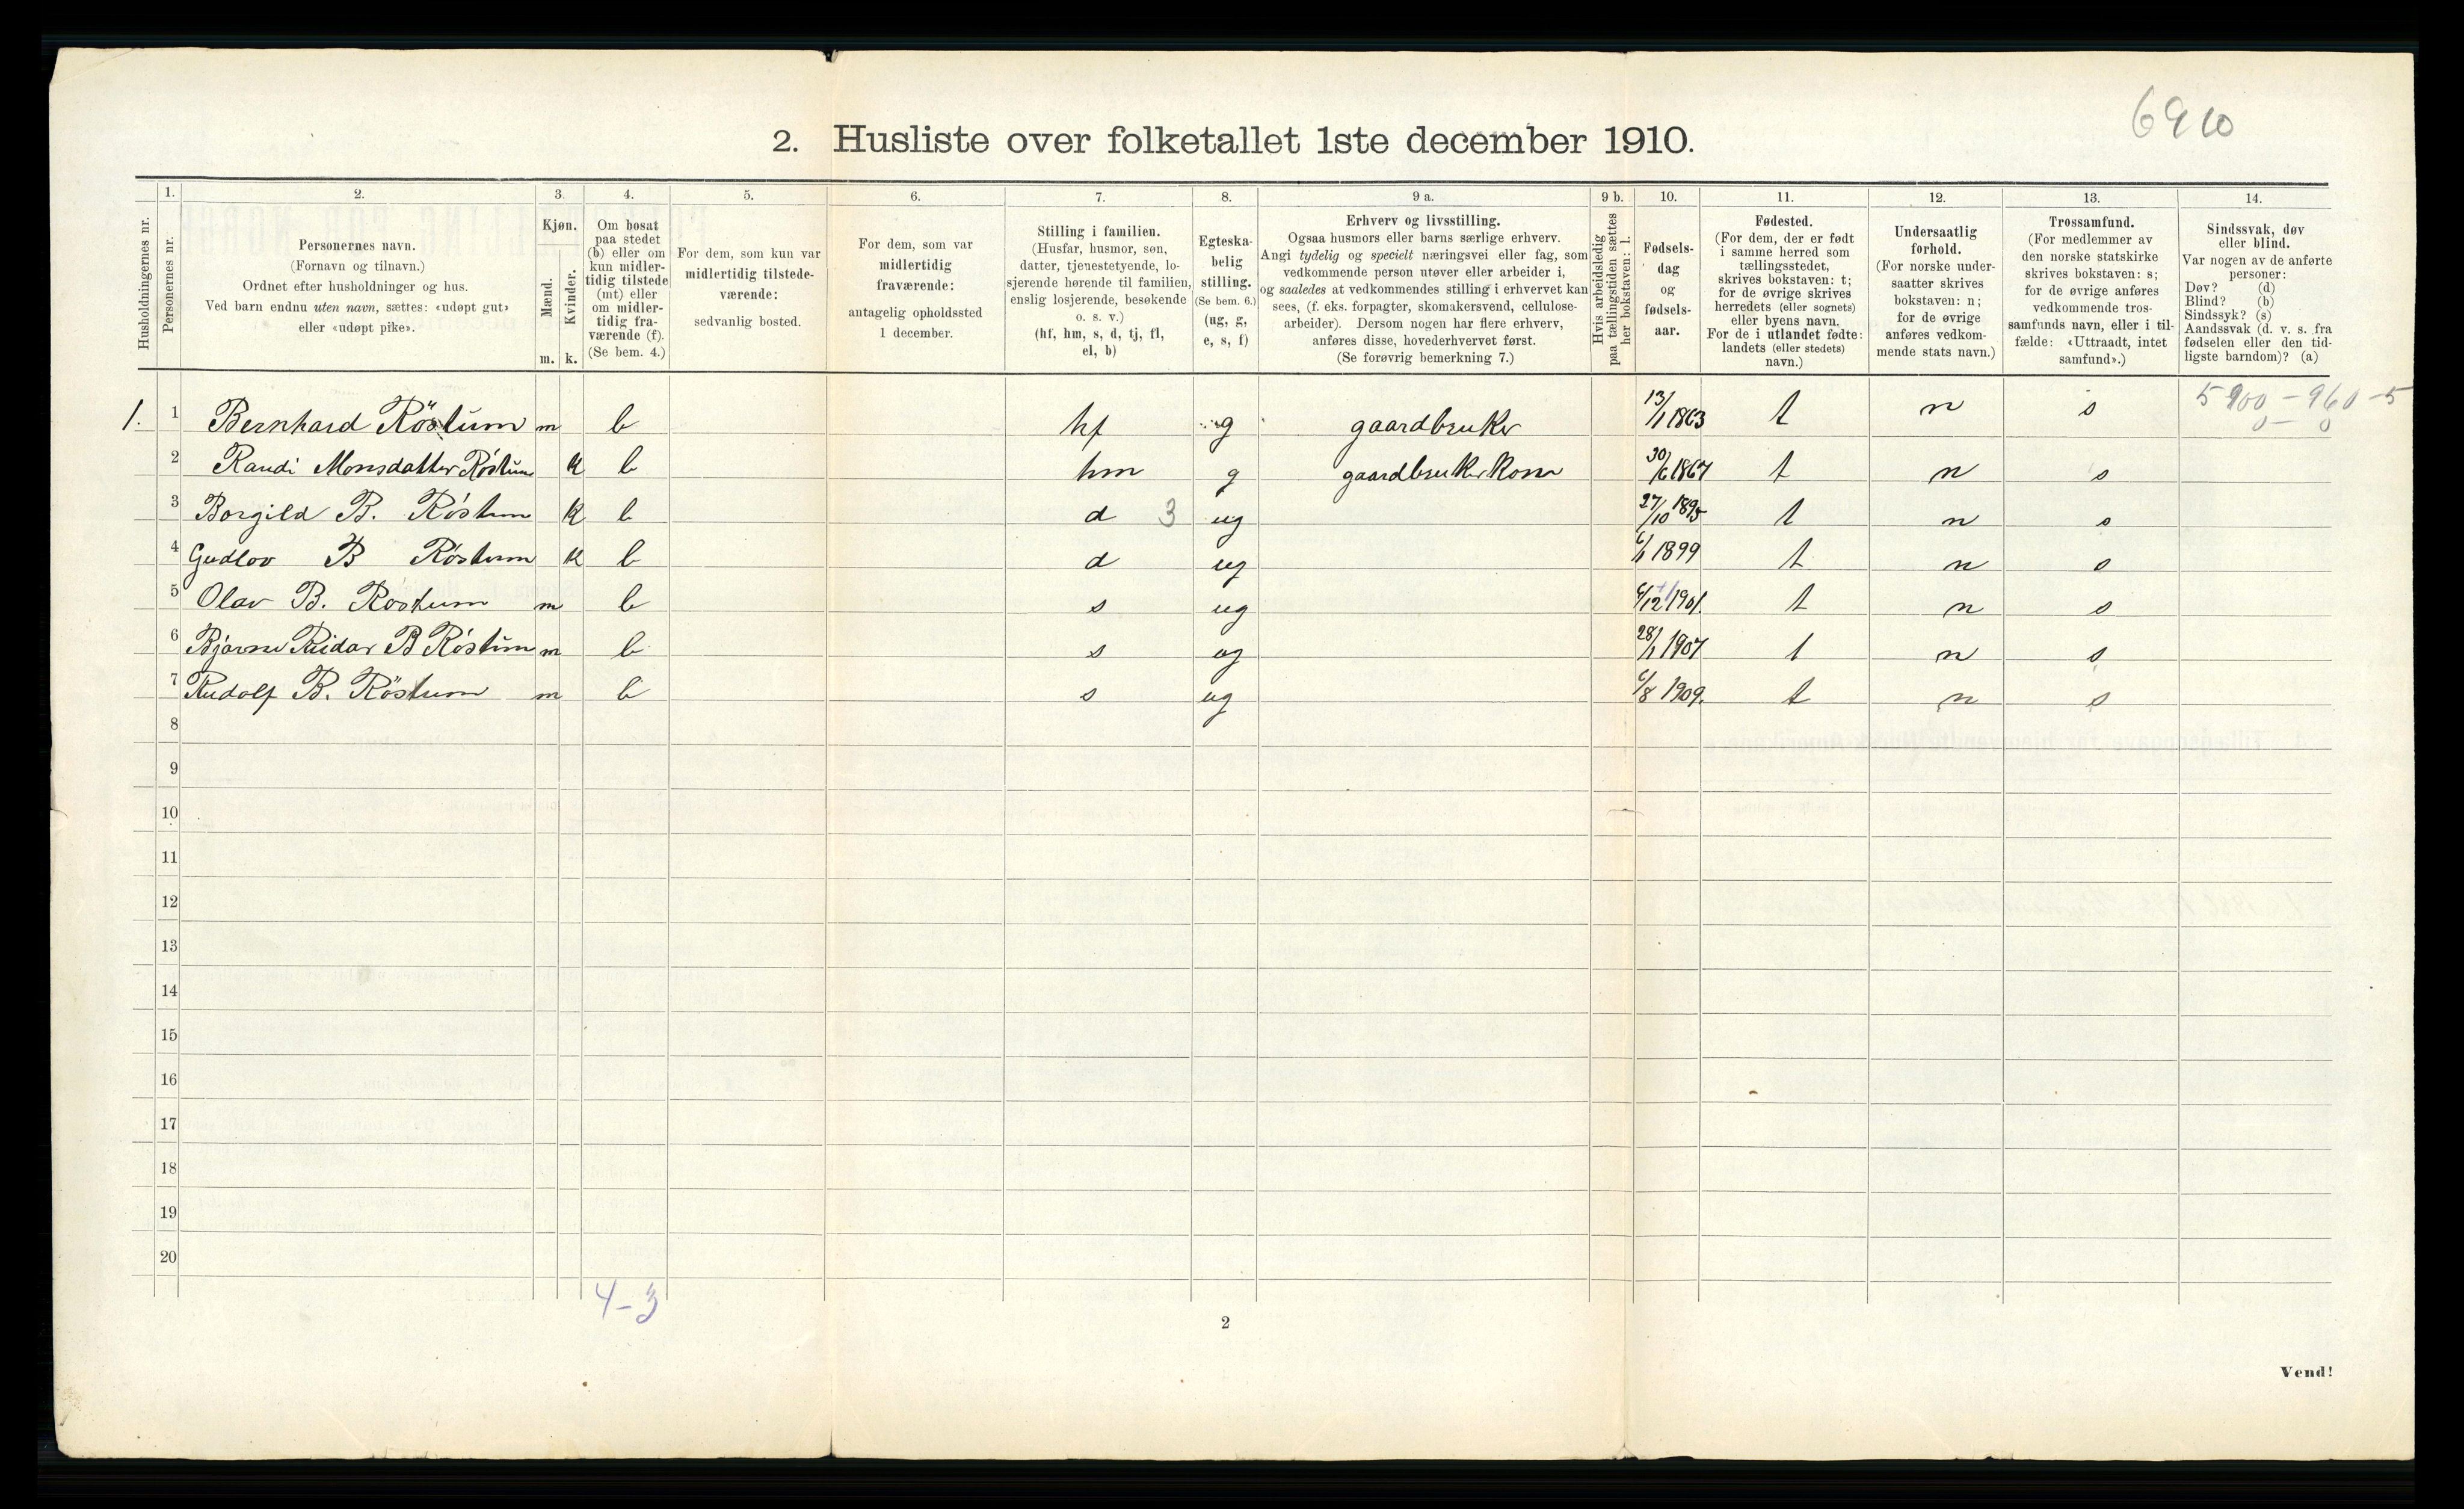 6910
2. Husliste over folketallet 1ste december 1910.
Husholdningernes nr.
1.
Personernes nr.
2.
Personernes navn.
(Fornavn og tilnavn.)
Ordnet efter husholdninger og hus.
Ved barn endnu uten navn, sættes: «udøpt gut»
eller «udøpt pike».
3.
Kjøn.
Mænd.
Kvinder.
m. k.
4.
Om bosat
paa stedet
(b) eller om
kun midler-
tidig tilstede
(mt) eller
om midler-
tidig fra-
værende (f).
(Se bem. 4.)
5.
For dem, som kun var
midlertidig tilstede-
værende:
sedvanlig bosted.
6.
For dem, som var
midlertidig
fraværende:
antagelig opholdssted
1 december.
7.
Stilling i familien.
(Husfar, husmor, søn,
datter, tjenestetyende, lo-
sjerende hørende til familien,
enslig losjerende, besøkende
o. s. v.)
(hf, hm, s, d, tj, fl,
el, b)
8.
Egteska-
belig
stilling.
(Se bem. 6.)
(ug, g,
e, s, f)
9 a.
Erhverv og livsstilling.
Ogsaa husmors eller barns særlige erhverv.
Angi tydelig og specielt næringsvei eller fag, som
vedkommende person utøver eller arbeider i,
og saaledes at vedkommendes stilling i erhvervet kan
sees, (f. eks. forpagter, skomakersvend, cellulose-
arbeider). Dersom nogen har flere erhverv,
anføres disse, hovederhvervet først.
(Se forøvrig bemerkning 7.)
9 b.
Hvis arbeidsledig
paa tællingstiden sættes
her bokstaven: l.
10.
Fødsels-
dag
og
fødsels-
aar.
11.
Fødested.
(For dem, der er født
i samme herred som
tællingsstedet,
skrives bokstaven: t;
for de øvrige skrives
herredets (eller sognets)
eller byens navn.
For de i utlandet fødte:
landets (eller stedets)
navn.)
12.
Undersaatlig
forhold.
(For norske under-
saatter skrives
bokstaven: n;
for de øvrige
anføres vedkom-
mende stats navn.)
13.
Trossamfund.
(For medlemmer av
den norske statskirke
skrives bokstaven: s;
for de øvrige anføres
vedkommende tros-
samfunds navn, eller i til-
fælde: «Uttraadt, intet
samfund».)
14.
Sindssvak, døv
eller blind.
Var nogen av de anførte
personer:
Døv? (d)
Blind? (b)
Sindssyk? (s)
Aandssvak (d. v. s. fra
fødselen eller den tid-
ligste barndom)? (a)
5900 - 960 - 5
0 - 0
1. 1 Bernhard Röstum m b hf g gaardbruker 13/1 1863 t n s
2 Randi Monsdatter Röstum k b hm g gaardbrukerkone 30/6 1867 t n s
3 Borgild B. Röstum k b d 3 ug 27/10 1895 t n s
4 Gudlov B Röstum k b d ug 6/1 1899 t n s
5 Olav B. Rostum m b s ug 6/12 1901. t n s
6 Bjarne Reidar B Röstum m b s ug 28/1 1907 t n s
7 Rudolf B. Röstum m b s ug 6/8 1909. t n s
8
9
10
11
12
13
14
15
16
17
18
19
20
4-3
2
Vend!